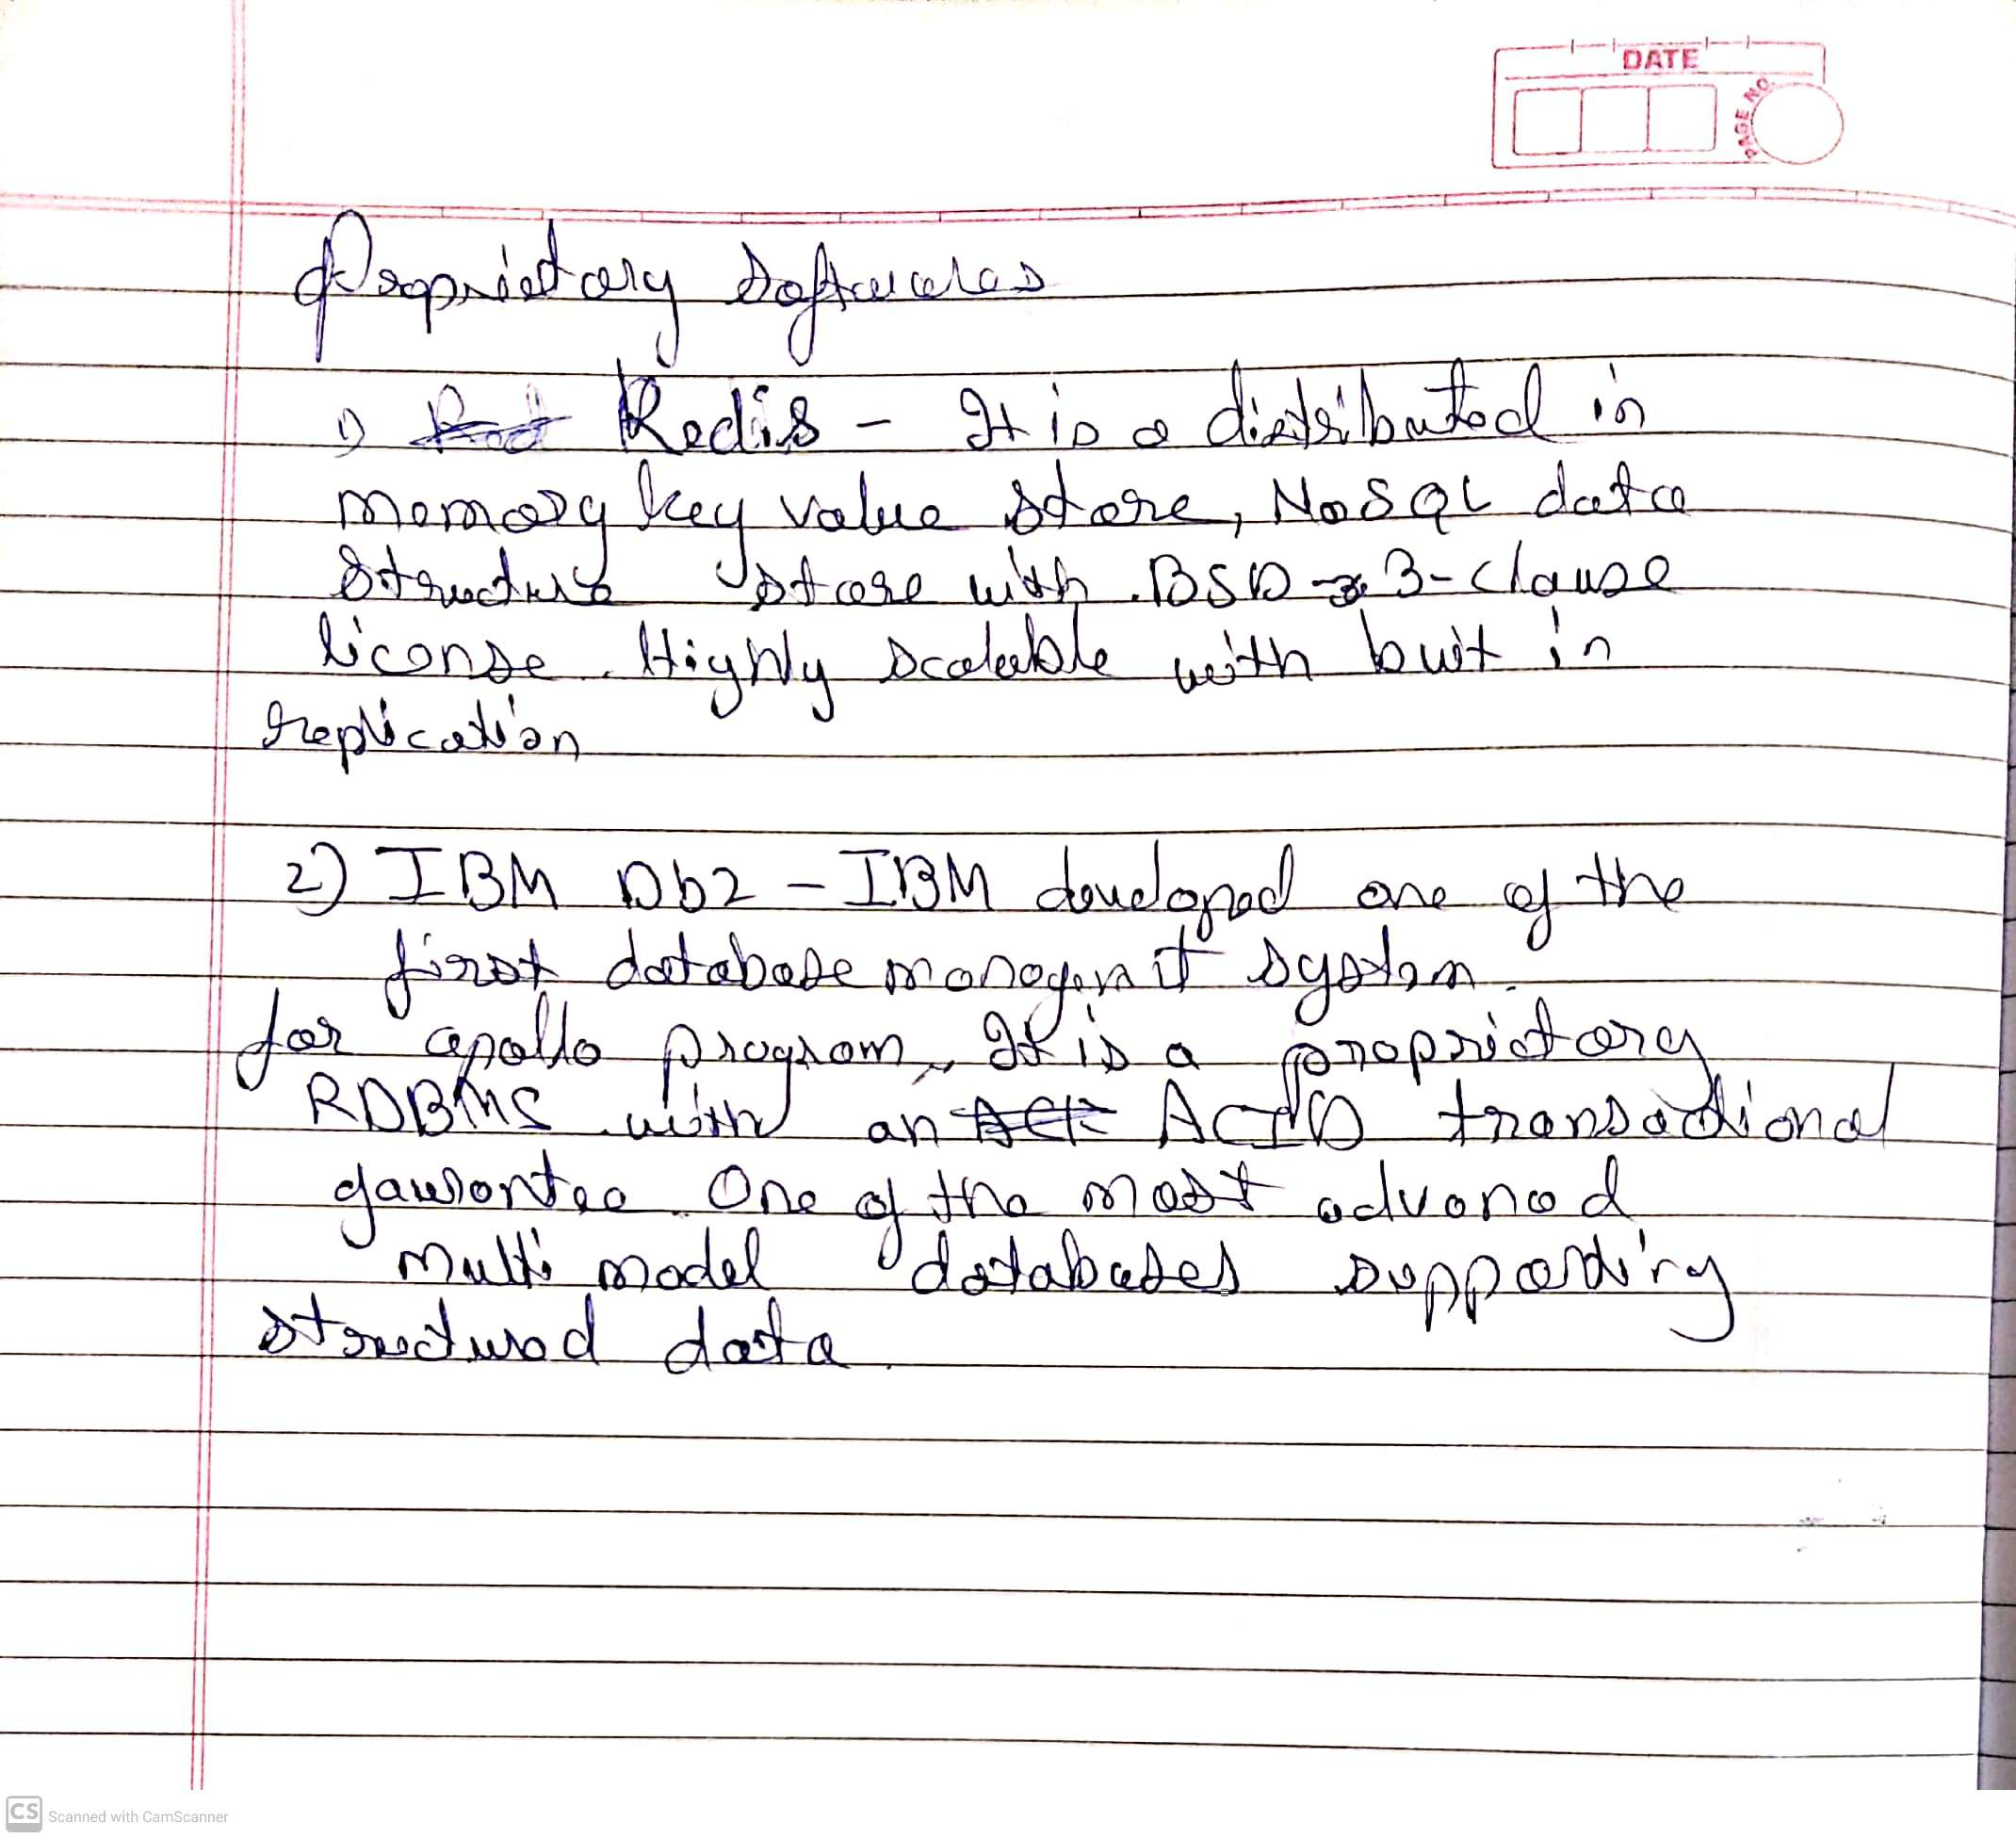 DATE
PAGE NO.
Proprietary Softwares
1) Redis - It is a distributed in
memory key value store, NoSQL data
structure store with BSD 3-clause
license. Highly scalable with buit in
replication
2) IBM Db2 - IBM developed one of the
first database managemnt system
for apollo program, It is a proprietary
RDBMS with an ACID transactional
gaurantee. One of the most advanced
multi model databases supporting
structured data.
CS Scanned with CamScanner